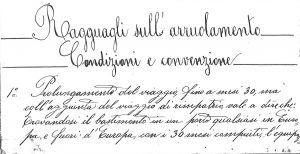 Ragguagli sull'arruolamento
Condizioni e convenzione
1° Prolungamento del viaggio fino a mesi 30, ma
coll'aggiunta del viaggio di rimpatrio, vale a dire che:
trovandosi il bastimento in un porto qualsiasi in Euro-
pa, e fuori d'Europa, con i 30 mesi compiuti, l'equip